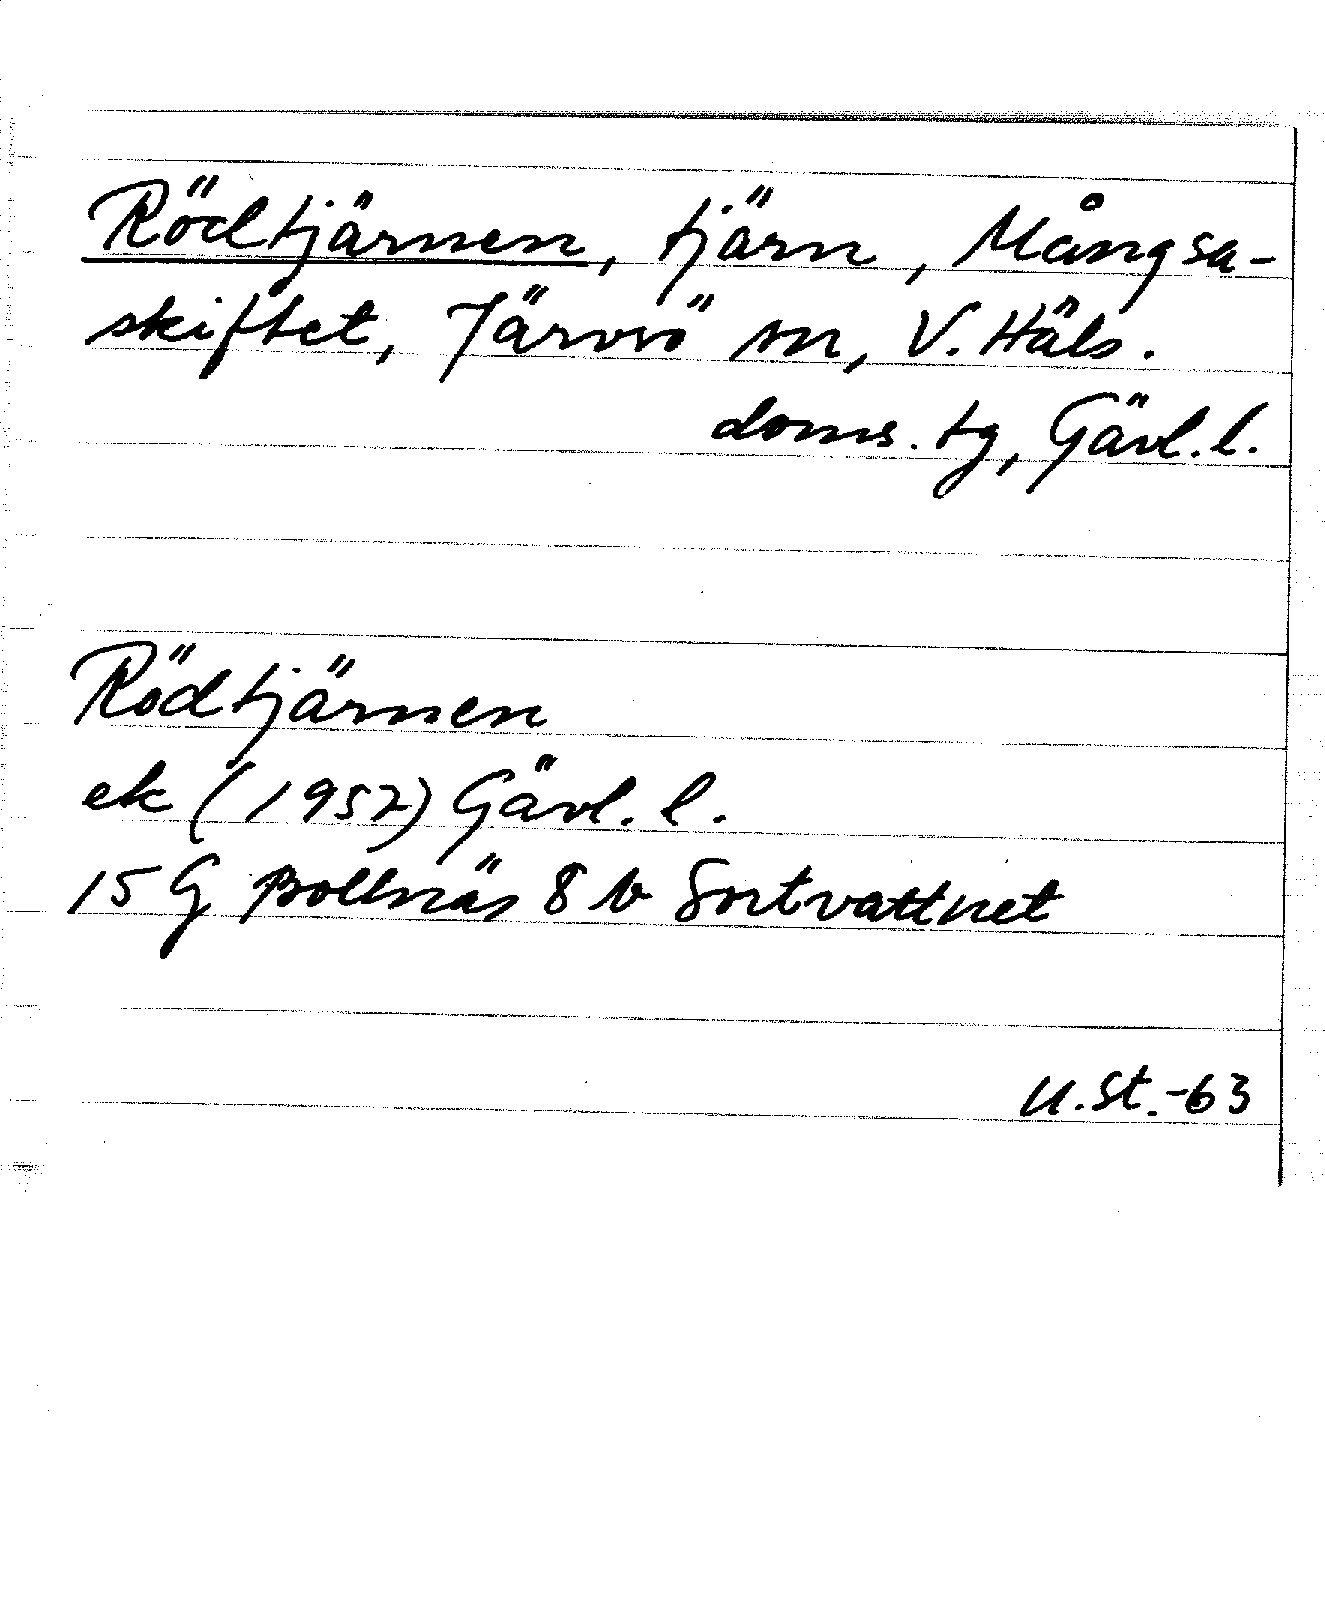 Rödtjärnen, tjärn, Mångsa-
skiftet, Järvsö sn, V. Häls.
doms. tg, Gävl. l.
Rödtjärnen
ek (1957) Gävl. l.
15 G Bollnäs 8 b Sortvattnet
U. St. -63